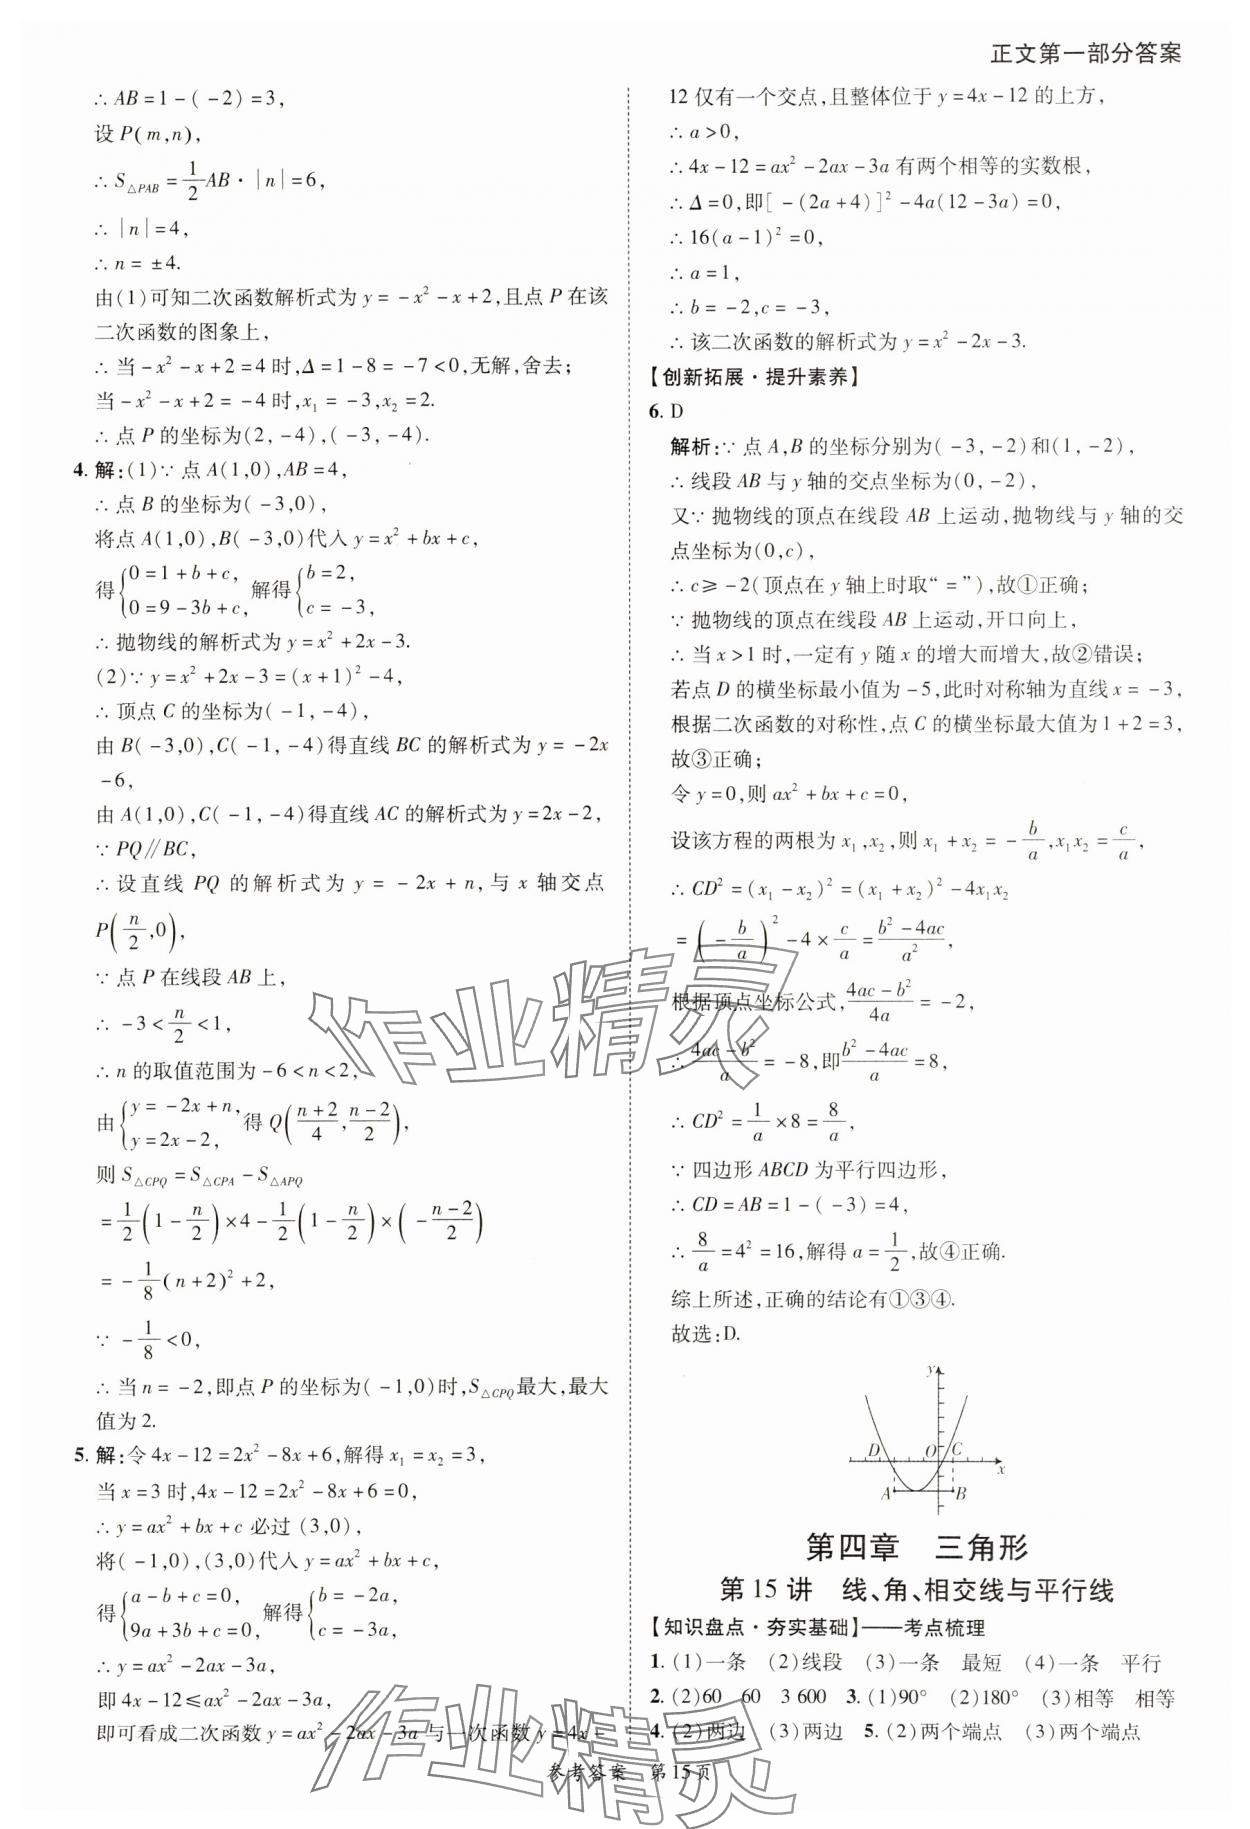 正文第一部分答案
∴ AB=1-(-2)=3,
设 P(m,n),
∴ S△PAB=1/2 AB·|n|=6,
∴ |n|=4,
∴ n=±4.
由(1)可知二次函数解析式为 y=-x²-x+2,且点 P 在该
二次函数的图象上,
∴ 当-x²-x+2=4 时,Δ=1-8=-7<0,无解,舍去;
当-x²-x+2=-4 时,x₁=-3,x₂=2.
∴ 点 P 的坐标为(2,-4),(-3,-4).
4. 解:(1)∵ 点 A(1,0),AB=4,
∴ 点 B 的坐标为(-3,0),
将点 A(1,0),B(-3,0)代入 y=x²+bx+c,
得{0=1+b+c, 0=9-3b+c, 解得{b=2, c=-3,
∴ 抛物线的解析式为 y=x²+2x-3.
(2)∵ y=x²+2x-3=(x+1)²-4,
∴ 顶点 C 的坐标为(-1,-4),
由 B(-3,0),C(-1,-4)得直线 BC 的解析式为 y=-2x
-6,
由 A(1,0),C(-1,-4)得直线 AC 的解析式为 y=2x-2,
∵ PQ∥BC,
∴ 设直线 PQ 的解析式为 y=-2x+n,与 x 轴交点
P(n/2,0),
∵ 点 P 在线段 AB 上,
∴ -3<n/2<1,
∴ n 的取值范围为-6<n<2,
由{y=-2x+n, y=2x-2, 得 Q((n+2)/4,(n-2)/2),
则 S△CPQ=S△CPA-S△APQ
=1/2(1-n/2)×4-1/2(1-n/2)×(-(n-2)/2)
=-1/8(n+2)²+2,
∵ -1/8<0,
∴ 当 n=-2,即点 P 的坐标为(-1,0)时,S△CPQ最大,最大
值为 2.
5. 解:令 4x-12=2x²-8x+6,解得 x₁=x₂=3,
当 x=3 时,4x-12=2x²-8x+6=0,
∴ y=ax²+bx+c 必过 (3,0),
将(-1,0),(3,0)代入 y=ax²+bx+c,
得{a-b+c=0, 9a+3b+c=0, 解得{b=-2a, c=-3a,
∴ y=ax²-2ax-3a,
即 4x-12≤ax²-2ax-3a,
即可看成二次函数 y=ax²-2ax-3a 与一次函数 y=4x-
12 仅有一个交点,且整体位于 y=4x-12 的上方,
∴ a>0,
∴ 4x-12=ax²-2ax-3a 有两个相等的实数根,
∴ Δ=0,即[-(2a+4)]²-4a(12-3a)=0,
∴ 16(a-1)²=0,
∴ a=1,
∴ b=-2,c=-3,
∴ 该二次函数的解析式为 y=x²-2x-3.
【创新拓展·提升素养】
6. D
解析:∵ 点 A,B 的坐标分别为(-3,-2)和(1,-2),
∴ 线段 AB 与 y 轴的交点坐标为(0,-2),
又∵ 抛物线的顶点在线段 AB 上运动,抛物线与 y 轴的交
点坐标为(0,c),
∴ c≥-2(顶点在 y 轴上时取“=”),故①正确;
∵ 抛物线的顶点在线段 AB 上运动,开口向上,
∴ 当 x>1 时,一定有 y 随 x 的增大而增大,故②错误;
若点 D 的横坐标最小值为-5,此时对称轴为直线 x=-3,
根据二次函数的对称性,点 C 的横坐标最大值为 1+2=3,
故③正确;
令 y=0,则 ax²+bx+c=0,
设该方程的两根为 x₁,x₂,则 x₁+x₂=-b/a,x₁x₂=c/a,
∴ CD²=(x₁-x₂)²=(x₁+x₂)²-4x₁x₂
=(-b/a)²-4×c/a=(b²-4ac)/a²,
根据顶点坐标公式,(4ac-b²)/4a=-2,
∴ (4ac-b²)/a=-8,即(b²-4ac)/a=8,
∴ CD²=1/a×8=8/a,
∵ 四边形 ABCD 为平行四边形,
∴ CD=AB=1-(-3)=4,
∴ 8/a=4²=16,解得 a=1/2,故④正确.
综上所述,正确的结论有①③④.
故选:D.
y
D O C x
A B
第四章 三角形
第 15 讲 线、角、相交线与平行线
【知识盘点·夯实基础】——考点梳理
1. (1)一条 (2)线段 (3)一条 最短 (4)一条 平行
2. (2)60 60 3 600 3. (1)90° (2)180° (3)相等 相等
4. (2)两边 (3)两边 5. (2)两个端点 (3)两个端点
参考答案 第 15 页
作业精灵
作业精灵